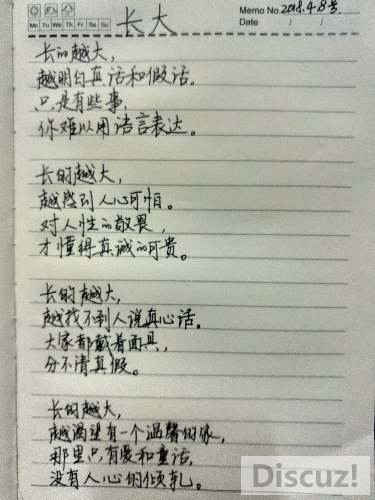 Memo No. 2018.4.8号
Mo Tu We Th Fr Sa Su
Date / /
长大
长的越大，
越明白真话和假话。
只是有些事，
你难以用语言表达。
长的越大，
越感到人心可怕。
对人性的敬畏，
才懂得真诚的可贵。
长的越大，
越找不到人说真心话。
大家都戴着面具，
分不清真假。
长的越大，
越渴望有一个温馨的家，
那里只有爱和童话，
没有人心的倾轧。
Discuz!